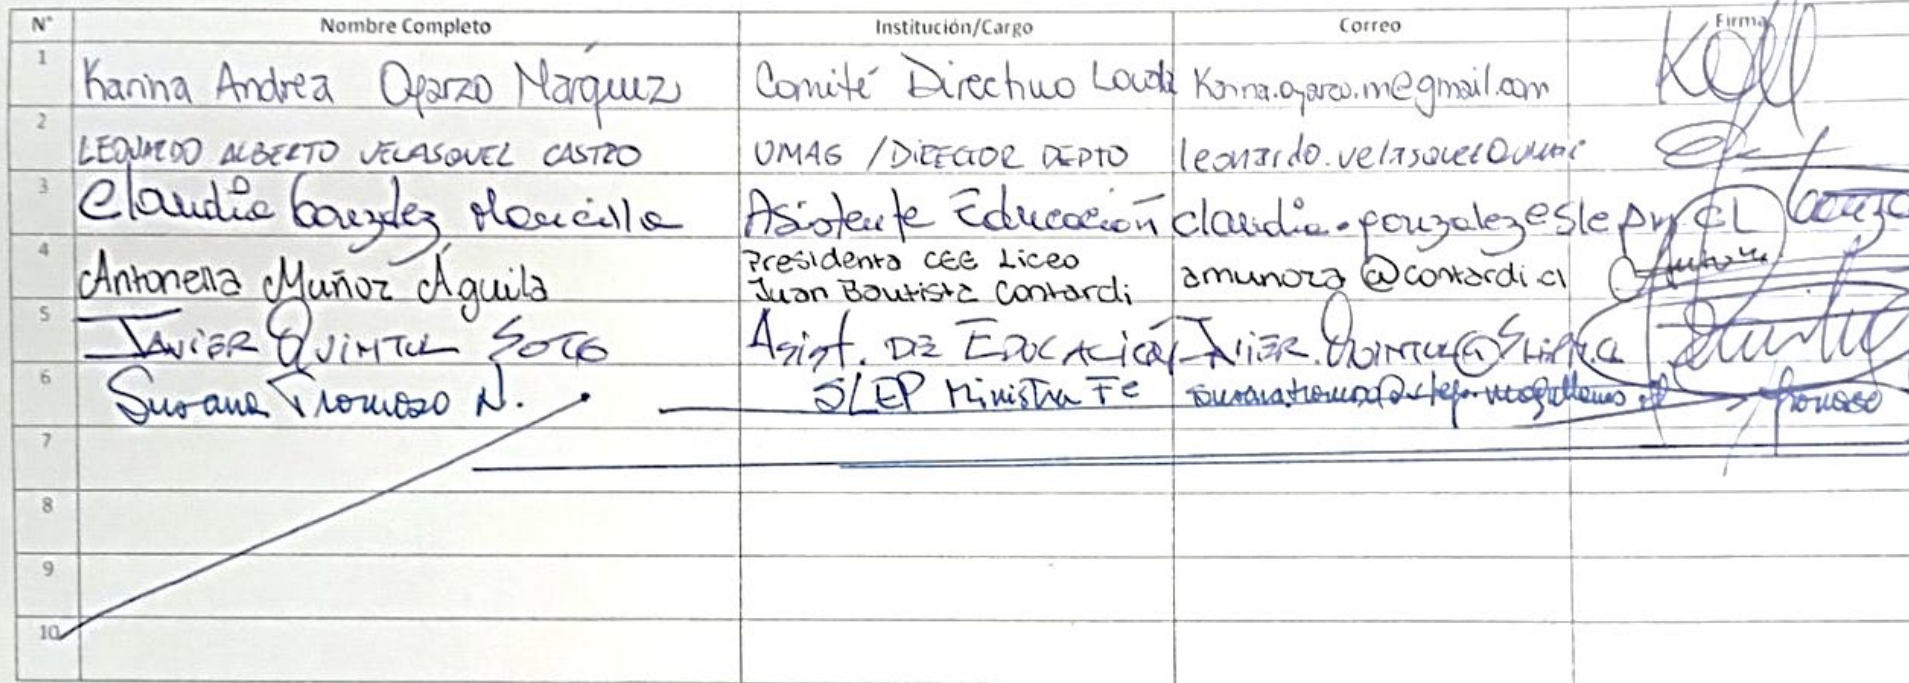 N° Nombre Completo Institución/Cargo Correo Firma
1 Karina Andrea Oyarzo Márquez Comité Directivo Karina.oyarzo.m@gmail.com
2 LEONARDO ALBERTO VELASQUEZ CASTRO UMAG / DIRECTOR DEPTO
3 Claudia González Mancilla Asistente Educación
4 Antonella Muñoz Águila Presidenta CEE Liceo
Juan Bautista Contardi amunoza@contardi.cl
5 JAVIER QUINTUL SOTO Asist. DE EDUCACIÓN
6 Susana Tromoso N. SLEP Ministra Fe
7
8
9
10